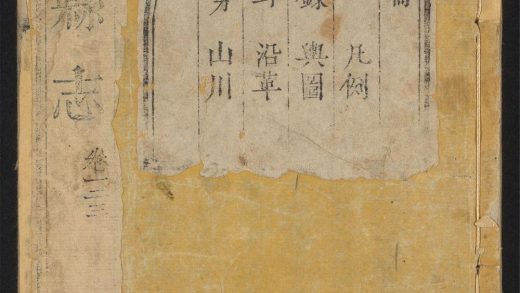 凡例
錄 輿圖
沿革
山川
縣志
卷一二三